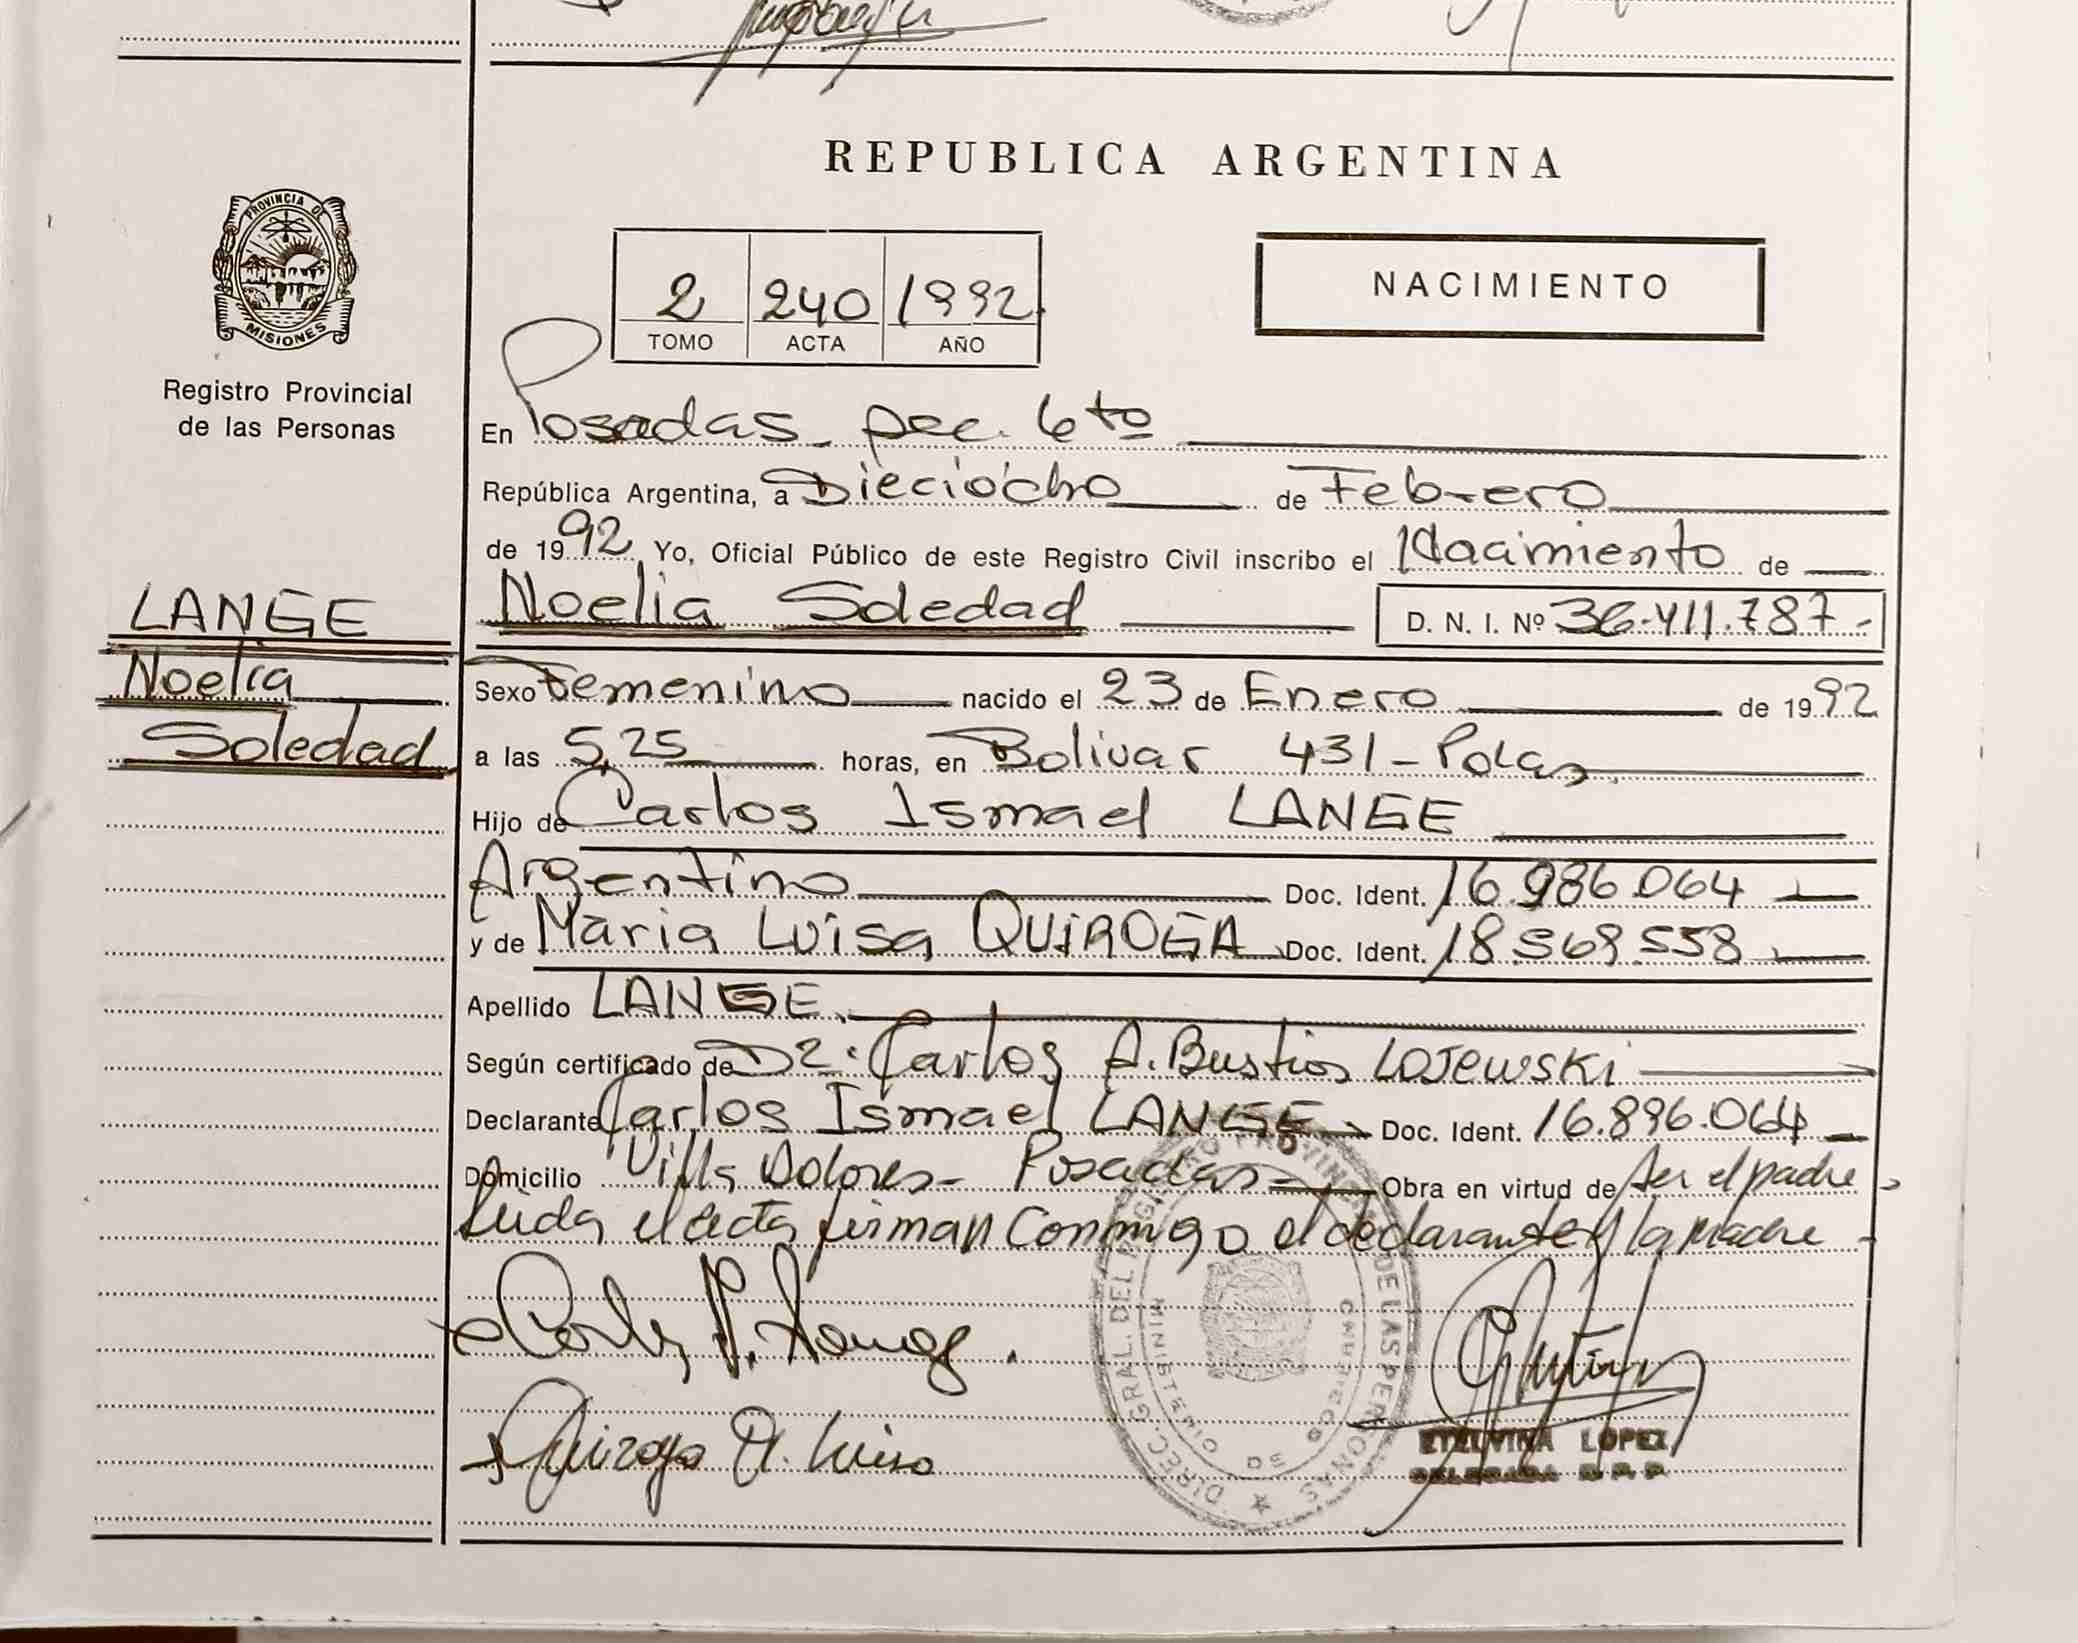 REPUBLICA ARGENTINA
PROVINCIA DE
MISIONES
Registro Provincial
de las Personas
2 240 1992
TOMO ACTA AÑO
NACIMIENTO
En Posadas sec. 6to
República Argentina, a Dieciocho de Febrero
de 1992 Yo, Oficial Público de este Registro Civil inscribo el Nacimiento de
Noelia Soledad D. N. I. Nº 36.411.787.-
LANGE
Noelia
Soledad
Sexo Femenino nacido el 23 de Enero de 1992
a las 5,25 horas, en Bolivar 431 - Pdas
Hijo de Carlos Ismael LANGE
Argentino Doc. Ident. 16.986.064
y de Maria Luisa QUIROGA Doc. Ident. 18.569.558
Apellido LANGE
Según certificado de Dr. Carlos A. Bustios LOJEWSKI
Declarante Carlos Ismael LANGE Doc. Ident. 16.896.064
Domicilio Villa Dolores - Posadas Obra en virtud de ser el padre
Leida el acta firman conmigo el declarante y la madre
Quiroga M. Luisa
DIREC. GRAL. DEL REGISTRO PROVINCIAL DE LAS PERSONAS
MINISTERIO DE GOBIERNO
ETELVINA LOPEZ
DELEGADA R.P.P.